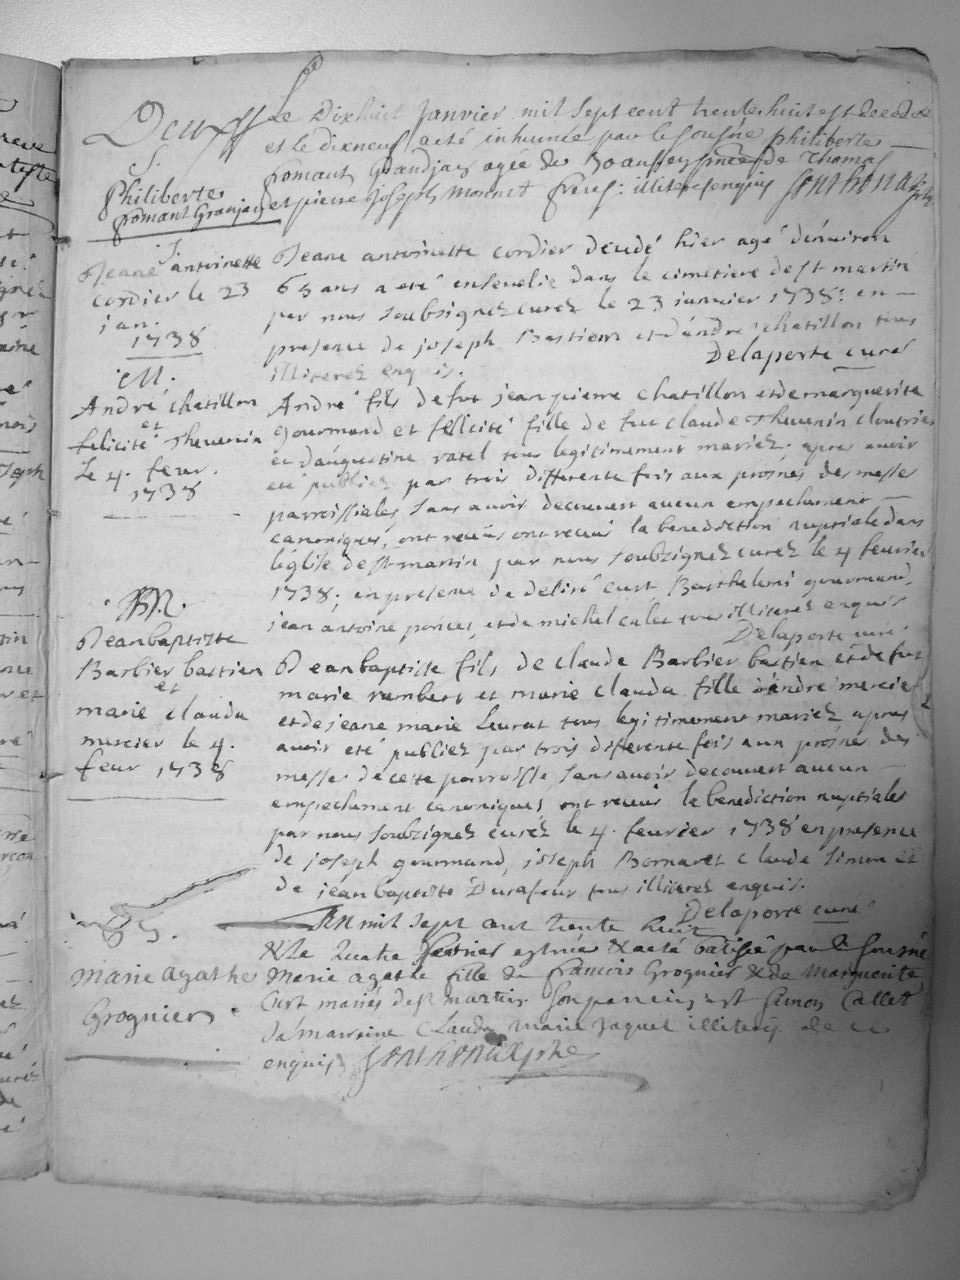 Deux
S.
Philiberte
fromant Granjan
Le Dixhuit Janvier mil sept cent trente huit est decedee
et le dixneuf a eté inhumée par le sousne philiberte
fromant Grandjan agée de 30 ans en presence de Thomas
et pierre Joseph Monnet freres illiteres enquis Sonthonax
S.
Jeane antoinette
cordier le 23
jan.
1738
Jeane antoinette cordier decedé hier agé d'environ
65 ans a eté ensevelie dans le cimetiere de st martin
par nous soubsignez curez le 23 janvier 1738: en
presence de joseph Bastien et d'andré chatillon tous
illiterez enquis.
Delaporte curé
M.
André chatillon
et
felicité Thevenin
le 4. feur.
1738
André fils de fut jean pierre chatillon et de marguerite
gourmand et felicité fille de fut claude Thevenin
et d'augustine ratel tous legitimement mariez. apres avoir
eté publiez par trois differente fois aux prosnes des messe
parroissiales sans avoir decouvert aucun empechement
canoniques, ont receus la benediction nuptiale dans
l'église de st martin par nous soubzignez curez le 4 feurier
1738; en presence de desiré curt Barthelemi gourmand,
jean antoine et de michel tous illiterez enquis
Delaporte curé
M.
Jean baptiste
Barbier bastien
et
marie clauda
mercier le 4.
feur 1738
Jean baptiste fils de claude Barbier bastien et de fut
marie rambert et marie clauda fille d'andré mercier
et de jeane marie Leurat tous legitimement mariez apres
avoir eté publiez par trois differente fois aux prosnes des
messe de cette parroisse sans avoir decouvert aucun
empechement canoniques ont receus la benediction nuptiales
par nous soubzignez curez le 4. feurier 1738 en presence
de joseph gourmand, joseph Bornaret claude Simon et
de jean baptiste Durafour tous illiterez enquis.
Delaporte curé
B.
Marie Agathe
Grognier.
L'An mil sept cent trente huit
& le quatre fevrier est née & a eté batisée par le sousné
Marie agathe fille de francois Grognier & de Marguerite
Curt mariés de st martin. son parrein est Simon Callet
sa marraine Clauda Marie Jaquet illiterés de ce
enquis Sonthonax ptre